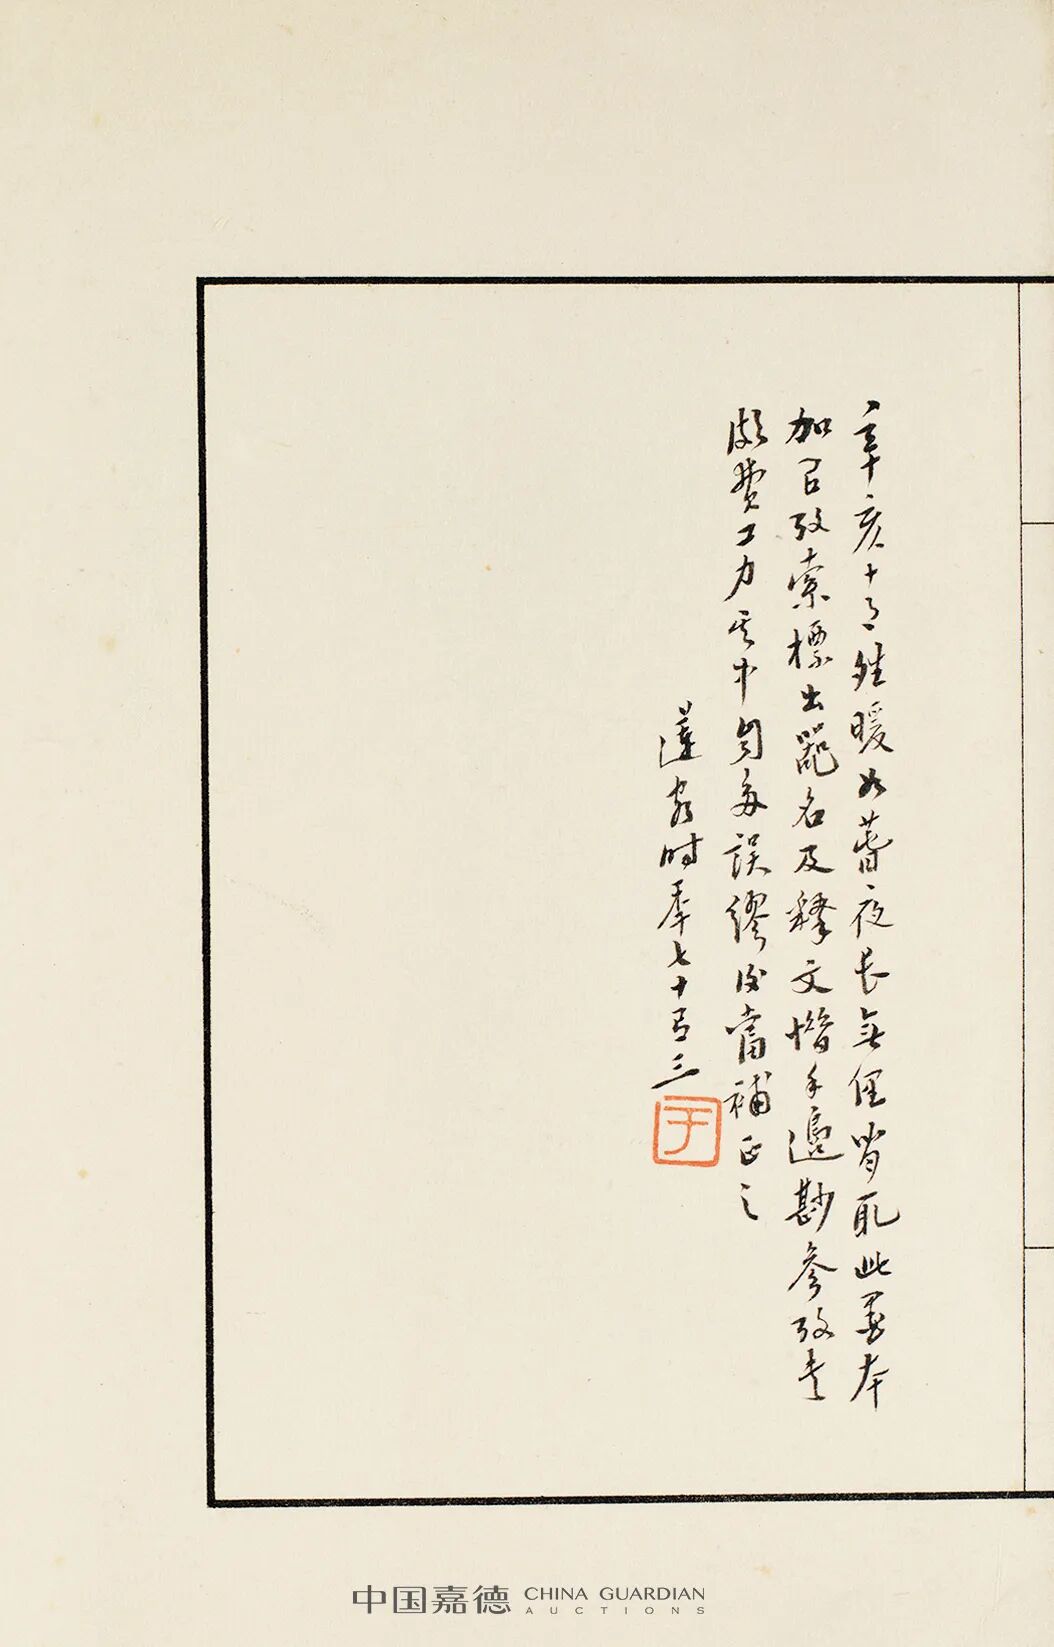 辛亥十月雖暖如萅夜長無俚旹取此本
加㠯攷索標出器名及釋文惜手邊尠參攷書
頗費工力其中自多誤繆後當補正之
蓮客時年七十有三
于
中国嘉德 CHINA GUARDIAN
AUCTIONS